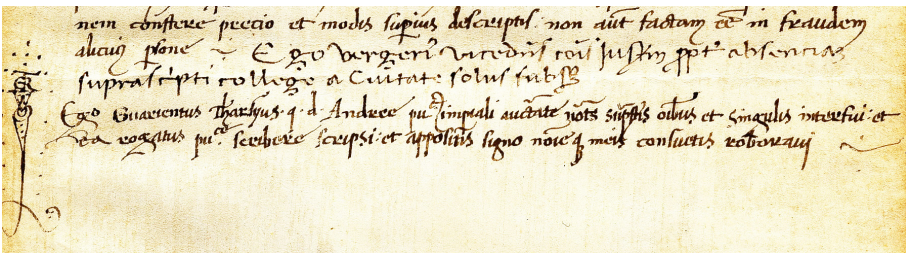 nem constere precio et modis supius descriptis non aut factam eē in fraudem
alicuj psone Ego verger vicedñs coiī Justin ppt absencias
suprascripti college a Ciuitate solus subsᵽ
Ego Guarientus Tharsius · q · d · Andree pu imptali auctate nots supptis oibus et singulis interfui · et
ea rogatus pu scribere scripsi · et appositis signo noīeq meis consuetis roboraui